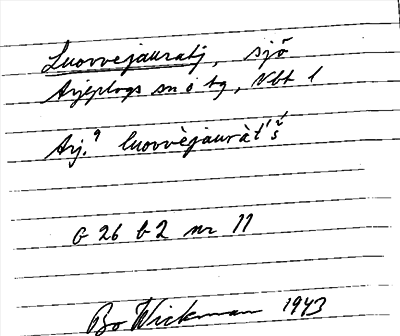 Luovvejauratj, sjö
Arjeplogs sn o tg, Nbt l
Arj. 9 luovvèjauràt'š́
G 26 b 2 nr 11
Bo Wickman 1943